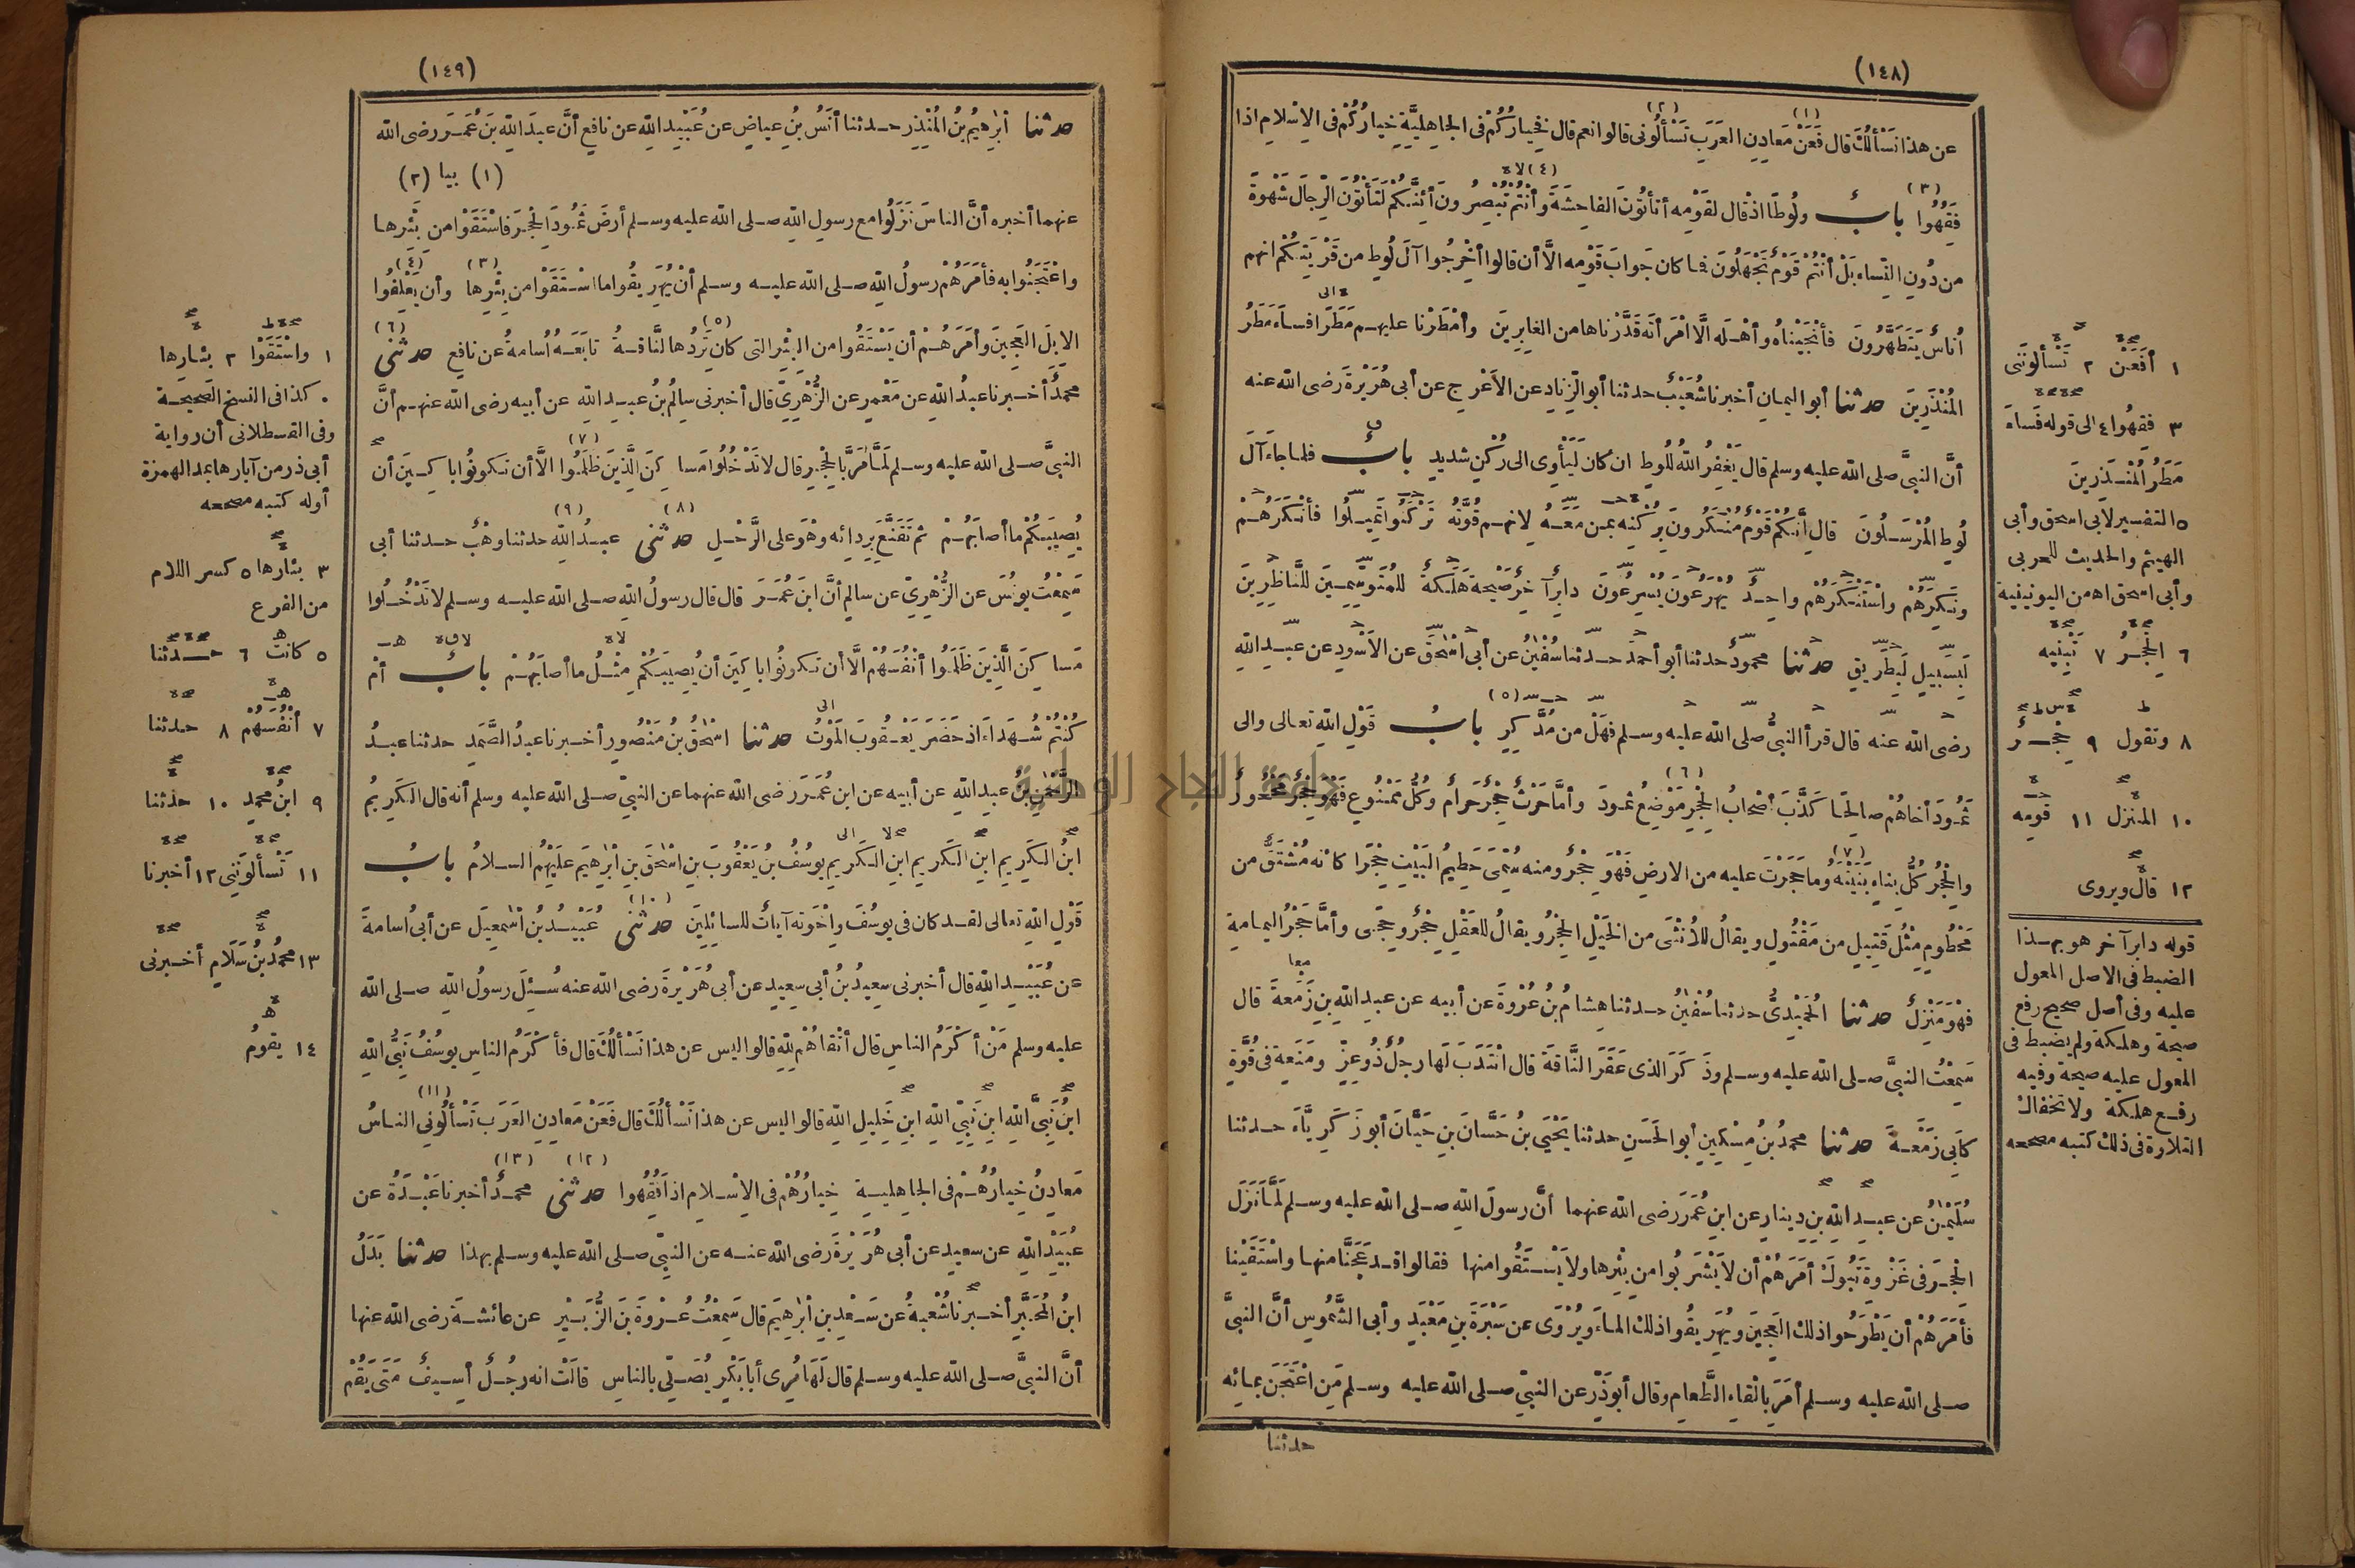 (١٤٨)
عن هذا نَسْأَلُكَ قال فَعَنْ مَعادِنِ العَرَبِ تَسْأَلُونى قالوا نعم قال فَخِيارُكُمْ فى الجاهِليَّةِ خِيارُكُمْ فى الاِسْلامِ اذا
فَقُهُوا بابٌ ولُوطًا اذْ قال لقَوْمِه أتأتُونَ الفاحِشَةَ وأنْتُمْ تُبْصِرُونَ أئِنَّكُمْ لَتَأتُونَ الرِّجالَ شَهْوةً
من دُونِ النِّساءِ بَلْ أنْتُمْ قَوْمٌ تَجْهَلُونَ فما كان جَوابَ قَوْمِه الَّا أن قالوا أخْرِجُوا آلَ لُوطٍ من قَرْيَتِكُمْ انهم
أُناسٌ يَتَطَهَّرُونَ فأنْجَيْناهُ وأهْلَه الَّا امْرَأتَه قَدَّرْناها من الغابِرِينَ وأمْطَرْنا عليهم مَطَرًا فساءَ مَطَرُ
المُنْذَرِينَ حدثنا أبو اليمان أخبرنا شُعَيْبٌ حدثنا أبو الزِّنادِ عن الاَعْرَجِ عن أبى هُرَيْرةَ رضى الله عنه
أنَّ النبىَّ صلى الله عليه وسلم قال يَغْفِرُ اللهُ للُوطٍ ان كان لَيَأْوِى الى رُكْنٍ شديدٍ بابٌ فلما جاءَ آلَ
لُوطٍ المُرْسَلُونَ قال انَّكُمْ قَوْمٌ مُنْكَرُونَ بِرُكْنِه بمن مَعَهُ لانهم قُوَّتُهُ تَرْكَنُوا تَمِيلُوا فأنْكَرَهُمْ
ونَكِرَهُمْ واسْتَنْكَرَهُمْ واحِدٌ يُهْرَعُونَ يُسْرِعُونَ دابِرَ آخِرَ صَيْحةً هَلَكَةٌ للمُتَوَسِّمِينَ للنَّاظِرِينَ
لَبِسَبِيلٍ لَبِطَرِيقٍ حدثنا محمودٌ حدثنا أبو أحمدَ حدثنا سُفْيٰنُ عن أبى اسْحٰقَ عن الاَسْوَدِ عن عبدِ اللهِ
رضى الله عنه قال قرأ النبىُّ صلى الله عليه وسلم فهَلْ من مُدَّكِرٍ بابُ قَوْلِ اللهِ تعالى والى
ثَمُودَ أخاهُمْ صالِحًا كَذَّبَ أصْحابُ الحِجْرِ مَوْضِعُ ثمودَ وأمَّا حَرْثٌ حِجْرٌ حَرامٌ وكُلُّ مَمْنُوعٍ فَهْوَ حِجْرٌ مَحْجُورٌ
والحِجْرُ كُلُّ بناءٍ بَنَيْتَهُ وما حَجَرْتَ عليه من الارضِ فَهْوَ حِجْرٌ ومنه سُمِّىَ حَطِيمُ البَيْتِ حِجْرًا كانه مُشْتَقٌّ من
مَحْطُومٍ مِثْلُ قَتِيلٍ من مَقْتُولٍ ويقالُ للاُنْثَى من الخَيْلِ الحِجْرُ ويقالُ للعَقْلِ حِجْرٌ وحِجًى وأمَّا حَجْرُ اليمامةِ
فهْوَ مَنْزِلٌ حدثنا الحُمَيْدِىُّ حدثنا سُفْيٰنُ حدثنا هِشامُ بنُ عُرْوةَ عن أبيه عن عبدِ اللهِ بنِ زَمْعةَ قال
سَمِعْتُ النبىَّ صلى الله عليه وسلم وذَكَرَ الذى عَقَرَ النَّاقةَ قال انْتَدَبَ لَها رجُلٌ ذُو عِزٍّ ومَنَعةٍ فى قُوَّةٍ
كأبِى زَمْعةَ حدثنا محمدُ بنُ مِسْكِينٍ أبو الحَسَنِ حدثنا يَحْيَى بنُ حَسَّانَ بنِ حَيَّانَ أبو زَكَرِيَّاءَ حدثنا
سُلَيْمٰنُ عن عبدِ اللهِ بنِ دِينارٍ عن ابنِ عُمَرَ رضى الله عنهما أنَّ رسولَ اللهِ صلى الله عليه وسلم لَمَّا نَزَلَ
الحِجْرَ فى غَزْوةِ تَبُوكَ أمَرَهُمْ أن لا يَشْرَبُوا من بِئْرِها ولا يَسْتَقُوا منها فقالوا قد عَجَنَّا منها واسْتَقَيْنا
فأمَرَهُمْ أن يَطْرَحُوا ذلك العَجِينَ ويُهَرِيقُوا ذلك الماءَ ويُرْوَى عن سَبْرةَ بنِ مَعْبَدٍ وأبى الشَّمُوسِ أنَّ النبىَّ
صلى الله عليه وسلم أمَرَ بالْقاءِ الطَّعامِ وقال أبو ذَرٍّ عن النبىِّ صلى الله عليه وسلم مَنِ اعْتَجَنَ بمائِه
حدثنا
١ أفَعَنْ ٢ تَسْألُونَنى
٣ فَقِهُوا ٤ الى قوله فَساءَ
مَطَرُ المُنْذَرِينَ
٥ التفسير لابى اسحق وأبى
الهيثم والحديث للعربى
وأبى اسحق اه من اليونينية
٦ الحِجْرُ ٧ تَبْنِيه
٨ وتقول ٩ حِجْرٌ
١٠ المنزل ١١ قومه
١٢ قال ويروى
قوله دابر آخر هو بهذا
الضبط فى الاصل المعول
عليه وفى أصل صحيح رفع
صيحة وهلكة ولم يضبط فى
المعول عليه صيحة وفيه
رفع هلكة ولا تخفاك
التلاوة فى ذلك كتبه مصححه
(١٤٩)
حدثنا ابْرٰهِيمُ بنُ المُنْذِرِ حدثنا أنَسُ بنُ عياضٍ عن عُبَيْدِ اللهِ عن نافِعٍ أنَّ عبدَ اللهِ بنَ عُمَرَ رضى الله
عنهما أخبره أنَّ الناسَ نَزَلُوا مع رسولِ اللهِ صلى الله عليه وسلم أرضَ ثَمُودَ الحِجْرَ فاسْتَقَوْا من بِئْرِها
واعْتَجَنُوا به فأمَرَهُمْ رسولُ اللهِ صلى الله عليه وسلم أنْ يُهَرِيقُوا ما اسْتَقَوْا من بِئْرِها وأن يَعْلِفُوا
الابِلَ العَجِينَ وأمَرَهُمْ أن يَسْتَقُوا من البِئْرِ التى كان تَرِدُها النَّاقةُ تابَعَهُ أُسامةُ عن نافِعٍ حدثنى
محمدٌ أخبرنا عبدُ اللهِ عن مَعْمَرٍ عن الزُّهْرِىِّ قال أخبرنى سالِمُ بنُ عبدِ اللهِ عن أبيه رضى الله عنهم أنَّ
النبىَّ صلى الله عليه وسلم لَمَّا مَرَّ بالحِجْرِ قال لا تَدْخُلُوا مَساكِنَ الَّذِينَ ظَلَمُوا الَّا أن تَكونُوا باكِينَ أن
يُصِيبَكُمْ ما أصابَهُمْ ثم تَقَنَّعَ بِرِدائِه وهْوَ على الرَّحْلِ حدثنى عبدُ اللهِ حدثنا وهْبٌ حدثنا أبى
سَمِعْتُ يونُسَ عن الزُّهْرِىِّ عن سالِمٍ أنَّ ابنَ عُمَرَ قال قال رسولُ اللهِ صلى الله عليه وسلم لا تَدْخُلُوا
مَساكِنَ الَّذِينَ ظَلَمُوا أنْفُسَهُمْ الَّا أن تَكونُوا باكِينَ أن يُصِيبَكُمْ مِثْلُ ما أصابَهُمْ بابٌ أمْ
كُنْتُمْ شُهَداءَ اذ حَضَرَ يَعْقُوبَ المَوْتُ حدثنا اسْحٰقُ بنُ مَنْصُورٍ أخبرنا عبدُ الصَّمَدِ حدثنا عبدُ
الرَّحْمٰنِ بنُ عبدِ اللهِ عن أبيه عن ابنِ عُمَرَ رضى الله عنهما عن النبىِّ صلى الله عليه وسلم أنه قال الكَرِيمُ
ابنُ الكَرِيمِ ابنِ الكَرِيمِ ابنِ الكَرِيمِ يوسُفُ بنُ يَعْقُوبَ بنِ اسْحٰقَ بنِ ابْرٰهِيمَ عَلَيْهِمُ السلامُ بابُ
قَوْلِ اللهِ تعالى لقد كان فى يوسُفَ واخْوَتِه آياتٌ للسائِلِينَ حدثنى عُبَيْدُ بنُ اسْمٰعِيلَ عن أبى أُسامةَ
عن عُبَيْدِ اللهِ قال أخبرنى سعِيدُ بنُ أبى سعِيدٍ عن أبى هُرَيْرةَ رضى الله عنه سُئِلَ رسولُ اللهِ صلى الله
عليه وسلم مَنْ أكْرَمُ الناسِ قال أتْقاهُمْ للهِ قالوا ليس عن هذا نَسْأَلُكَ قال فأكْرَمُ الناسِ يوسُفُ نَبِىُّ اللهِ
ابنُ نَبِىِّ اللهِ ابنِ نَبِىِّ اللهِ ابنِ خَلِيلِ اللهِ قالوا ليس عن هذا نَسْأَلُكَ قال فَعَنْ مَعادِنِ العَرَبِ تَسْأَلُونِى الناسُ
مَعادِنُ خِيارُهُمْ فى الجاهِليةِ خِيارُهُمْ فى الاِسْلامِ اذا فَقُهُوا حدثنى محمدٌ أخبرنا عَبْدَةُ عن
عُبَيْدِ اللهِ عن سعِيدٍ عن أبى هُرَيْرةَ رضى الله عنه عن النبىِّ صلى الله عليه وسلم بهذا حدثنا بَدَلُ
ابنُ المُحَبَّرِ أخبرنا شُعْبةُ عن سَعْدِ بنِ ابْرٰهِيمَ قال سَمِعْتُ عُرْوةَ بنَ الزُّبَيْرِ عن عائشةَ رضى الله عنها
أنَّ النبىَّ صلى الله عليه وسلم قال لَها مُرِى أبا بَكْرٍ يُصَلِّى بالناسِ قالَتْ انه رجُلٌ أسِيفٌ مَتَى يَقُمْ
١ واسْتَقَوْا ٢ بئارِها
. كذا فى النسخ الصحيحة
وفى القسطلانى أن رواية
أبى ذر من آبارها بمد الهمزة
أوله كتبه مصححه
٣ بئارها ٥ كسر اللام
من الفرع
٥ كانت ٦ حدثنا
٧ أنْفُسَهُمْ ٨ حدثنا
٩ ابنُ محمدٍ ١٠ حدثنا
١١ تَسْألُونَنِى ١٢ أخبرنا
١٣ محمدُ بنُ سَلَامٍ أخبرنى
١٤ يقومُ
جامعة النجاح الوطنية